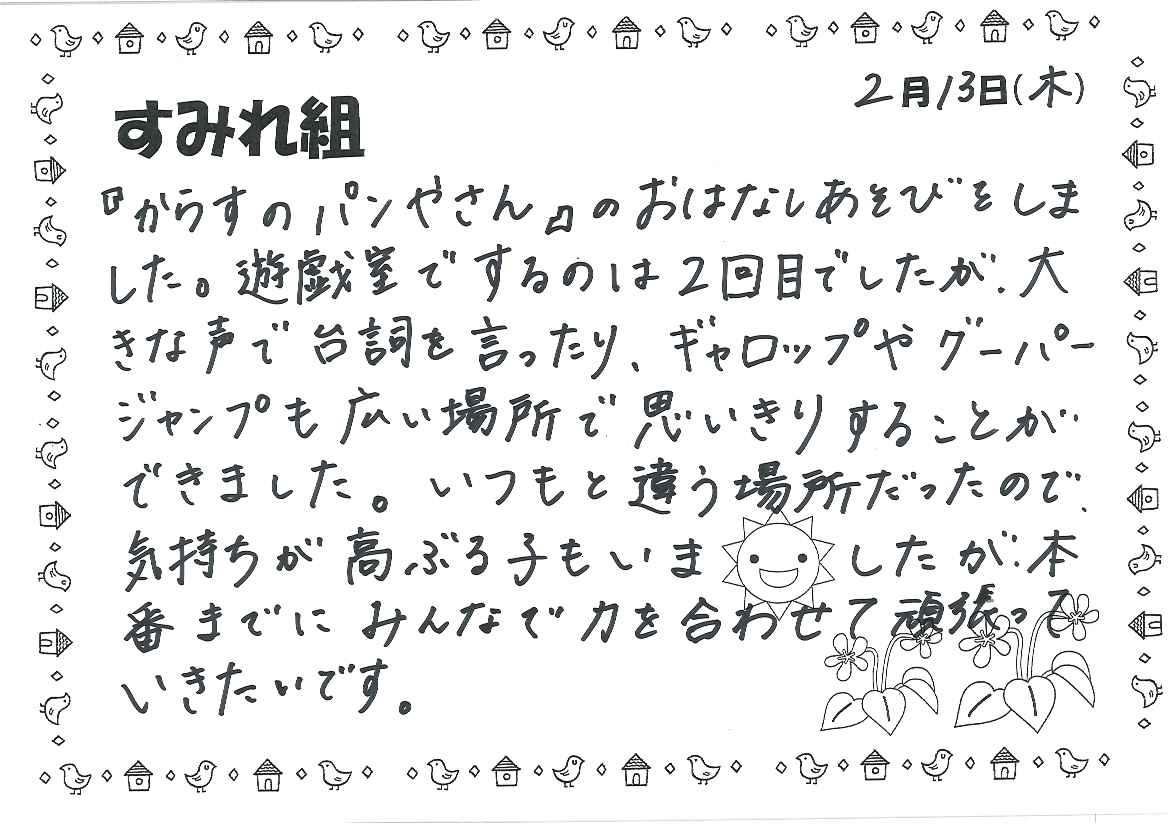 2月13日(木)
すみれ組
『からすのパンやさん』のおはなしあそびをしま
した。遊戯室でするのは2回目でしたが、大
きな声で台詞を言ったり、ギャロップやグーパー
ジャンプも広い場所で思いきりすることが
できました。いつもと違う場所だったので、
気持ちが高ぶる子もいましたが、本
番までにみんなで力を合わせて頑張って
いきたいです。